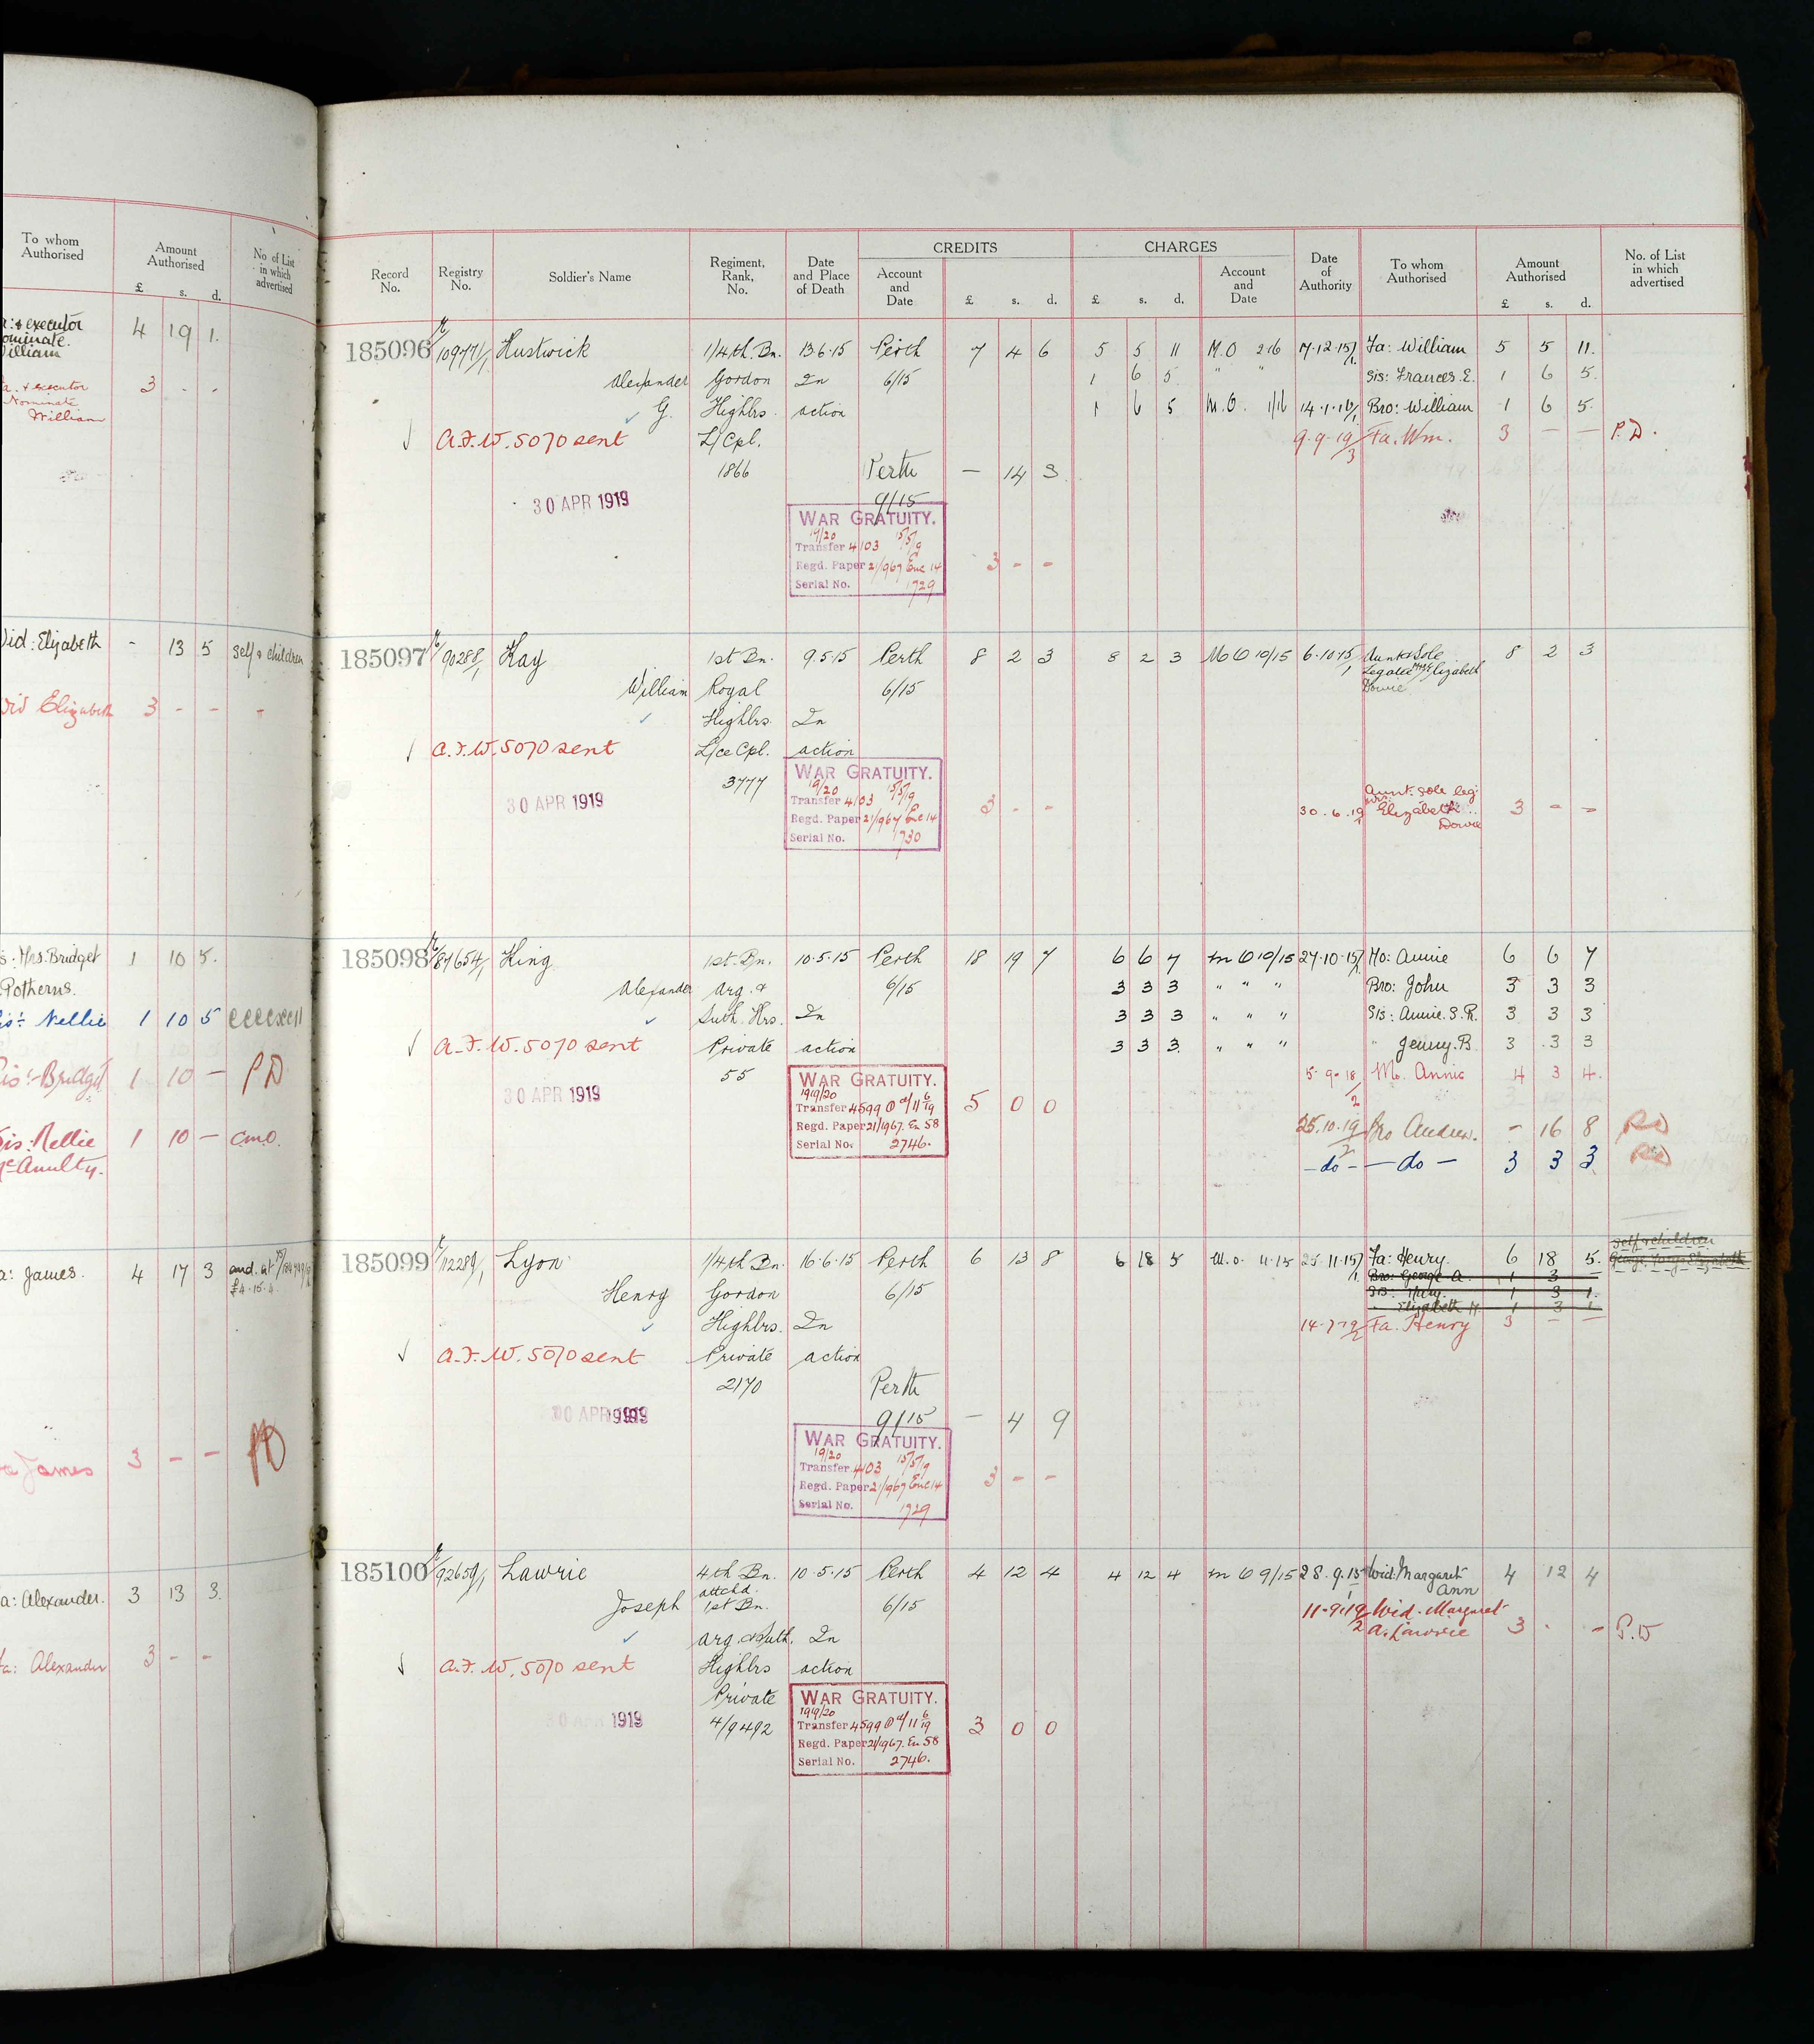 To whom Authorised Amount Authorised £ s. d. No. of List in which advertised
executor 4 19 1.
William
executor 3 - -
Nominate
William
Elizabeth - 13 5 self & children
Elizabeth 3 - -
Mrs. Bridget 1 10 5.
Potherns.
Nellie 1 10 5
Bridget 1 10 — PD
Sis: Nellie 1 10 — cmo.
James. 4 17 3 and. at
£4.15.4.
James 3 - - PD
Alexander. 3 13 3.
Alexander 3 - -
Record No. Registry No. Soldier's Name Regiment, Rank, No. Date and Place of Death CREDITS Account and Date £ s. d. CHARGES £ s. d. Account and Date Date of Authority To whom Authorised Amount Authorised £ s. d. No. of List in which advertised
185096 Hustwick 1/4th. Bn. 13.6.15 Perth 7 4 6 5 5 11 M.O 2/16 17.12.15/1 Fa: William 5 5 11.
Alexander Gordon In 6/15 1 6 5 " " Sis: Frances. E. 1 6 5.
G. Highlrs. action 1 6 5 M.O. 1/16 14.1.16/1 Bro: William 1 6 5.
A.F.W. 5070 sent L/Cpl. 9.9.19/3 Fa. Wm. 3 — — P.D.
1866 Perth — 14 3.
30 APR 1919 9/15
WAR GRATUITY.
19/20 15/5/9
Transfer 4103
Regd. Paper 21/967 Enc 14 3 - -
Serial No. 1729
185097 90288/1 Kay 1st Bn. 9.5.15 Perth 8 2 3 8 2 3 M O 10/15 6.10.15/1 Aunt & Sole 8 2 3
William Royal 6/15 Legatee Mrs Elizabeth
Highlrs. In Dowie
A.F.W. 5070 sent L/ce Cpl. action
3777
WAR GRATUITY.
19/20 15/5/19
30 APR 1919 Transfer 4103 3 - - 30.6.19 Aunt. sole leg: Mrs. Elizabeth Dowie 3 - -
Regd. Paper 21/967 Enc 14
Serial No. 1730
185098 87654/1 King 1st. Bn. 10.5.15 Perth 18 19 7 6 6 7 M O 10/15 27.10.15/1 Mo: Annie 6 6 7
Alexander Arg. & 6/15 3 3 3 " " " Bro: John 3 3 3
Suth. Hrs. In 3 3 3 " " " Sis: Annie. S. R. 3 3 3
A.F.W. 5070 sent Private action 3 3 3. " " " " Jenny. B. 3 3 3
55 5.9.18/2 Mo. Annie 4 3 4.
WAR GRATUITY.
1919/20
30 APR 1919 Transfer 4599 5 0 0
Regd. Paper 21/1967. En 58 25.10.19/2 Bro Andrew. - 16 8
Serial No. 2746. — do — — do — 3 3 3
185099 12289/1 Lyon 1/4th Bn. 16.6.15 Perth 6 13 8 6 18 5 M.O. 11.15 25.11.15/1 Fa: Henry. 6 18 5. Self & children
Bro: George A. 1 3
Henry Gordon 6/15 Sis: Mary. 1 3 1.
Elizabeth H. 1 3 1
Highlrs. In 14.7.19/2 Fa. Henry 3 — —
A.F.W. 5070 sent Private action
2170 Perth
30 APR 1919 9/15 — 4 9
WAR GRATUITY.
19/20 15/5/9
Transfer 4103
Regd. Paper 21/967 Enc 14 3 - -
Serial No. 1729
185100 92659/1 Lawrie 4th Bn. 10.5.15 Perth 4 12 4 4 12 4 M O 9/15 28.9.15/1 Wid: Margaret Ann 4 12 4
attchd.
Joseph 1st Bn. 6/15 11.9.19/2 Wid. Margaret A. Lawrie 3 . - P.D
Arg. & Suth. In
A.F.W. 5070 sent Highlrs action
Private
WAR GRATUITY.
1919/20
30 APR 1919 4/9492 Transfer 4599 3 0 0
Regd. Paper 21/1967. En 58
Serial No. 2746.